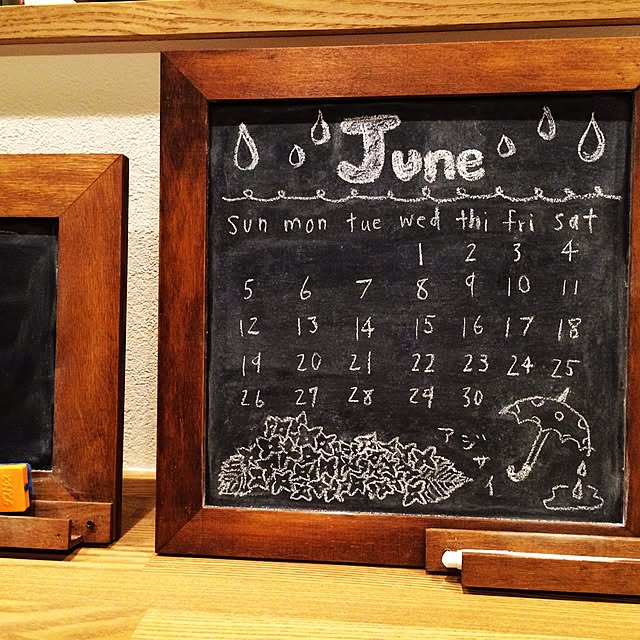 June
sun mon tue wed thi fri sat
1 2 3 4
5 6 7 8 9 10 11
12 13 14 15 16 17 18
19 20 21 22 23 24 25
26 27 28 29 30
アジサイ